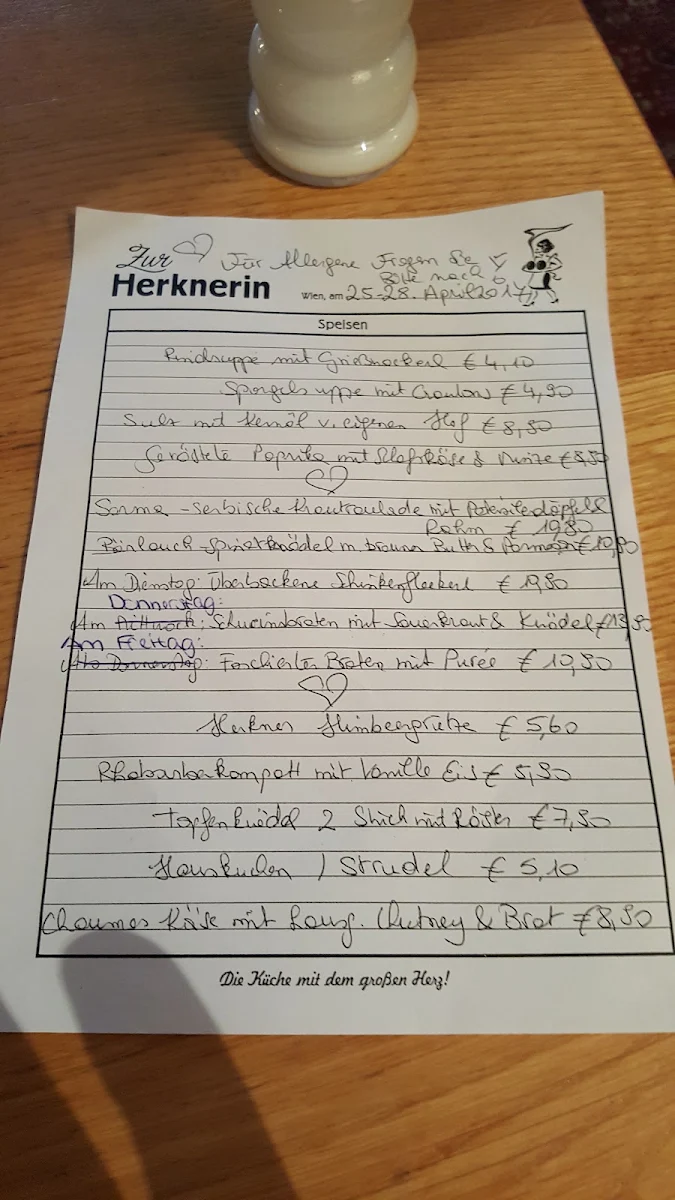 Zur Für Allergene Fragen Sie
Bitte nach
Herknerin Wien, am 25-28. April 2017
Speisen
Rindsuppe mit Grießnockerl € 4,10
Spargelsuppe mit Croutons € 4,90
Sulz mit Kernöl v. eigenen Hof € 8,80
Geröstete Paprika mit Schafskäse & Minze € 8,50
Sarma - serbische Krautroulade mit Petersilerdäpfel &
Rahm € 10,80
Bärlauch-Spinatknödel m. brauner Butter & Parmesan € 10,80
Am Dienstag: Überbackene Schinkenfleckerl € 10,80
Donnerstag:
Am Mittwoch: Schweinsbraten mit Sauerkraut & Knödel € 13,80
Am Freitag:
Am Donnerstag: Faschierter Braten mit Purée € 10,80
Herkner Himbeergrütze € 5,60
Rhabarberkompott mit Vanille Eis € 5,90
Topfenknödel 2 Stück mit Röster € 7,80
Hauskuchen / Strudel € 5,10
Chaumes Käse mit hausg. Chutney & Brot € 8,90
Die Küche mit dem großen Herz!